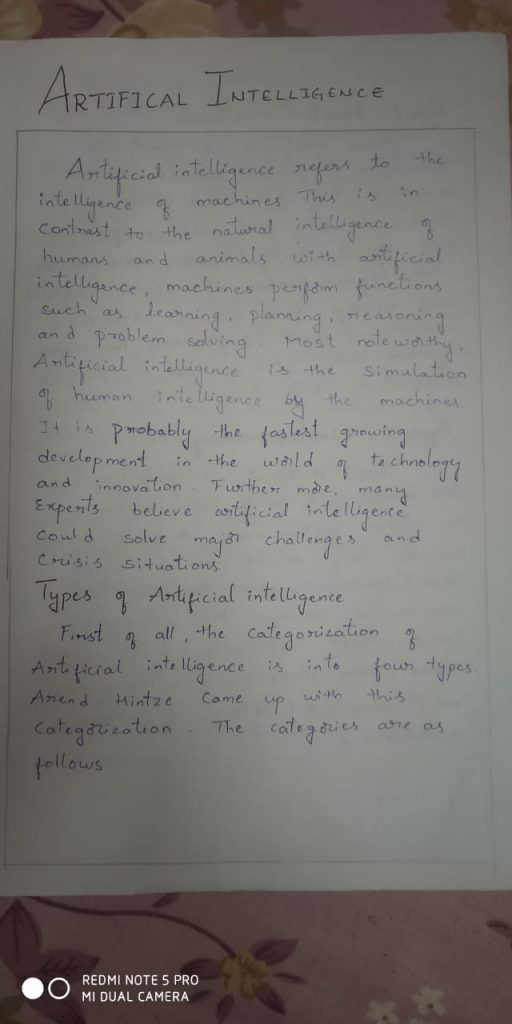 ARTIFICAL INTELLIGENCE
Artificial intelligence refers to the
intelligence of machines This is in
Contrast to the natural intelligence of
humans and animals. with artificial
intelligence, machines perform functions
such as learning, planning, reasoning
and problem solving. Most note worthy,
Artificial intelligence is the simulation
of human intelligence by the machines
It is probably the fastest growing
development in the world of technology
and innovation. Further more, many
Experts believe artificial intelligence
Could solve major challenges and
Crisis situations.
Types of Artificial intelligence
First of all, the categorization of
Artificial intelligence is into four types
Arend Hintze Came up with this
Categorization. The categories are as
follows
REDMI NOTE 5 PRO
MI DUAL CAMERA